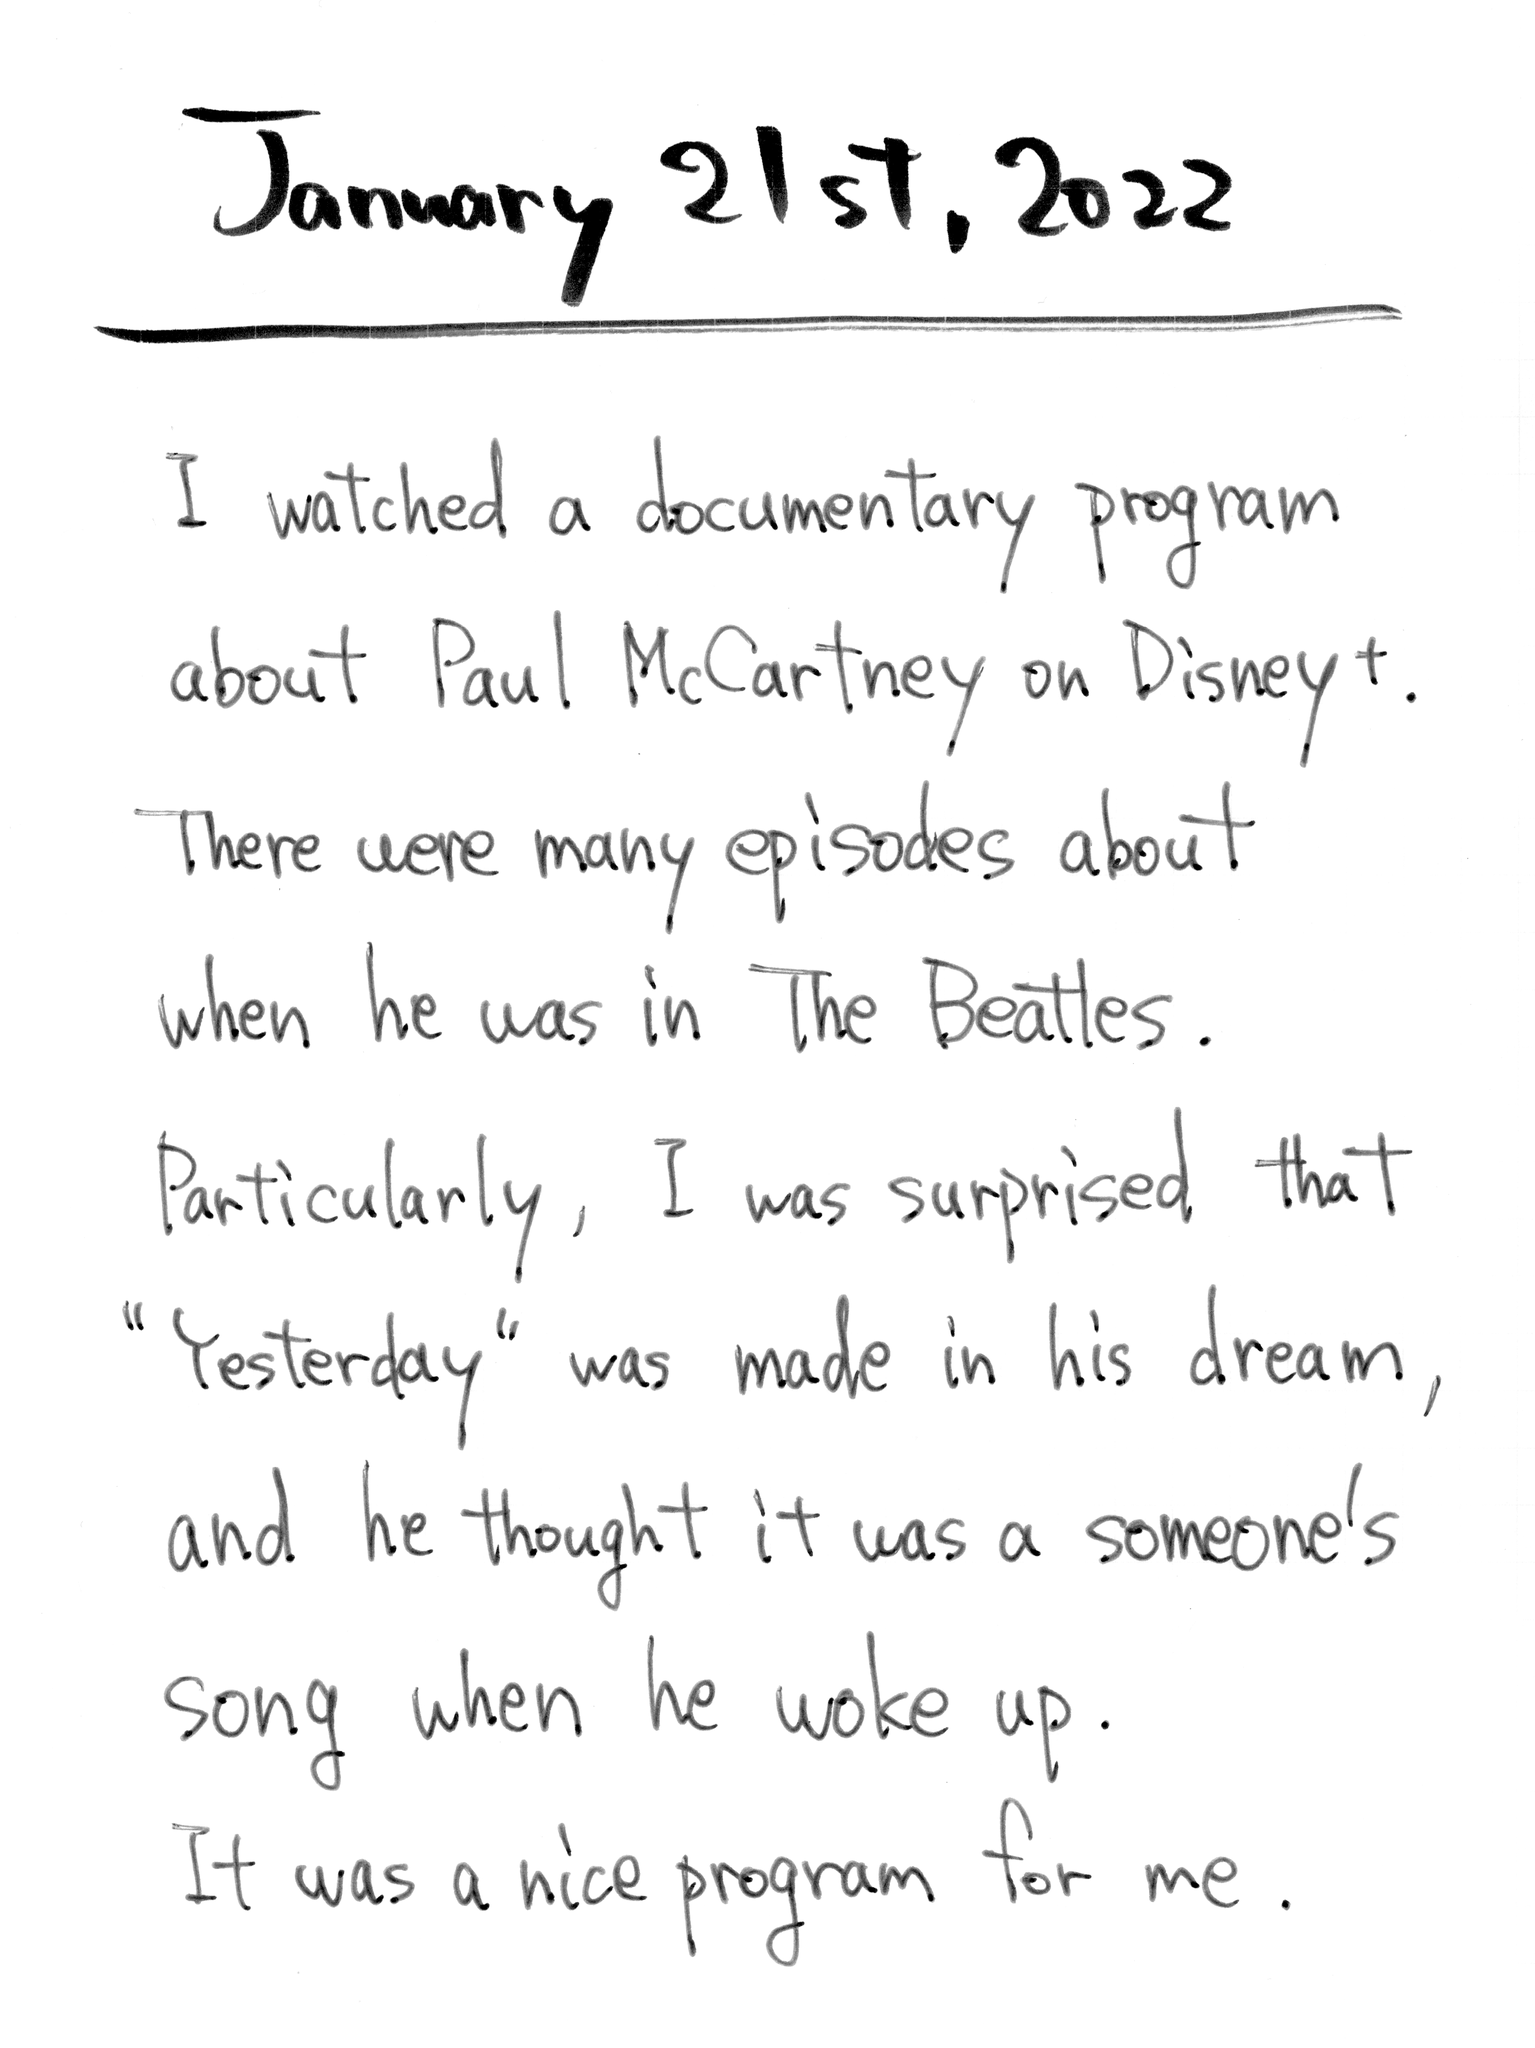 January 21st, 2022
I watched a documentary program
about Paul McCartney on Disney+.
There were many episodes about
when he was in The Beatles.
Particularly, I was surprised that
“Yesterday“ was made in his dream,
and he thought it was a someone's
song when he woke up.
It was a nice program for me.